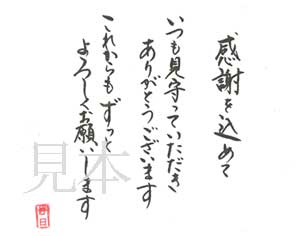 感謝を込めて
いつも見守っていただき
ありがとうございます
これからもずっと
よろしくお願いします
見本